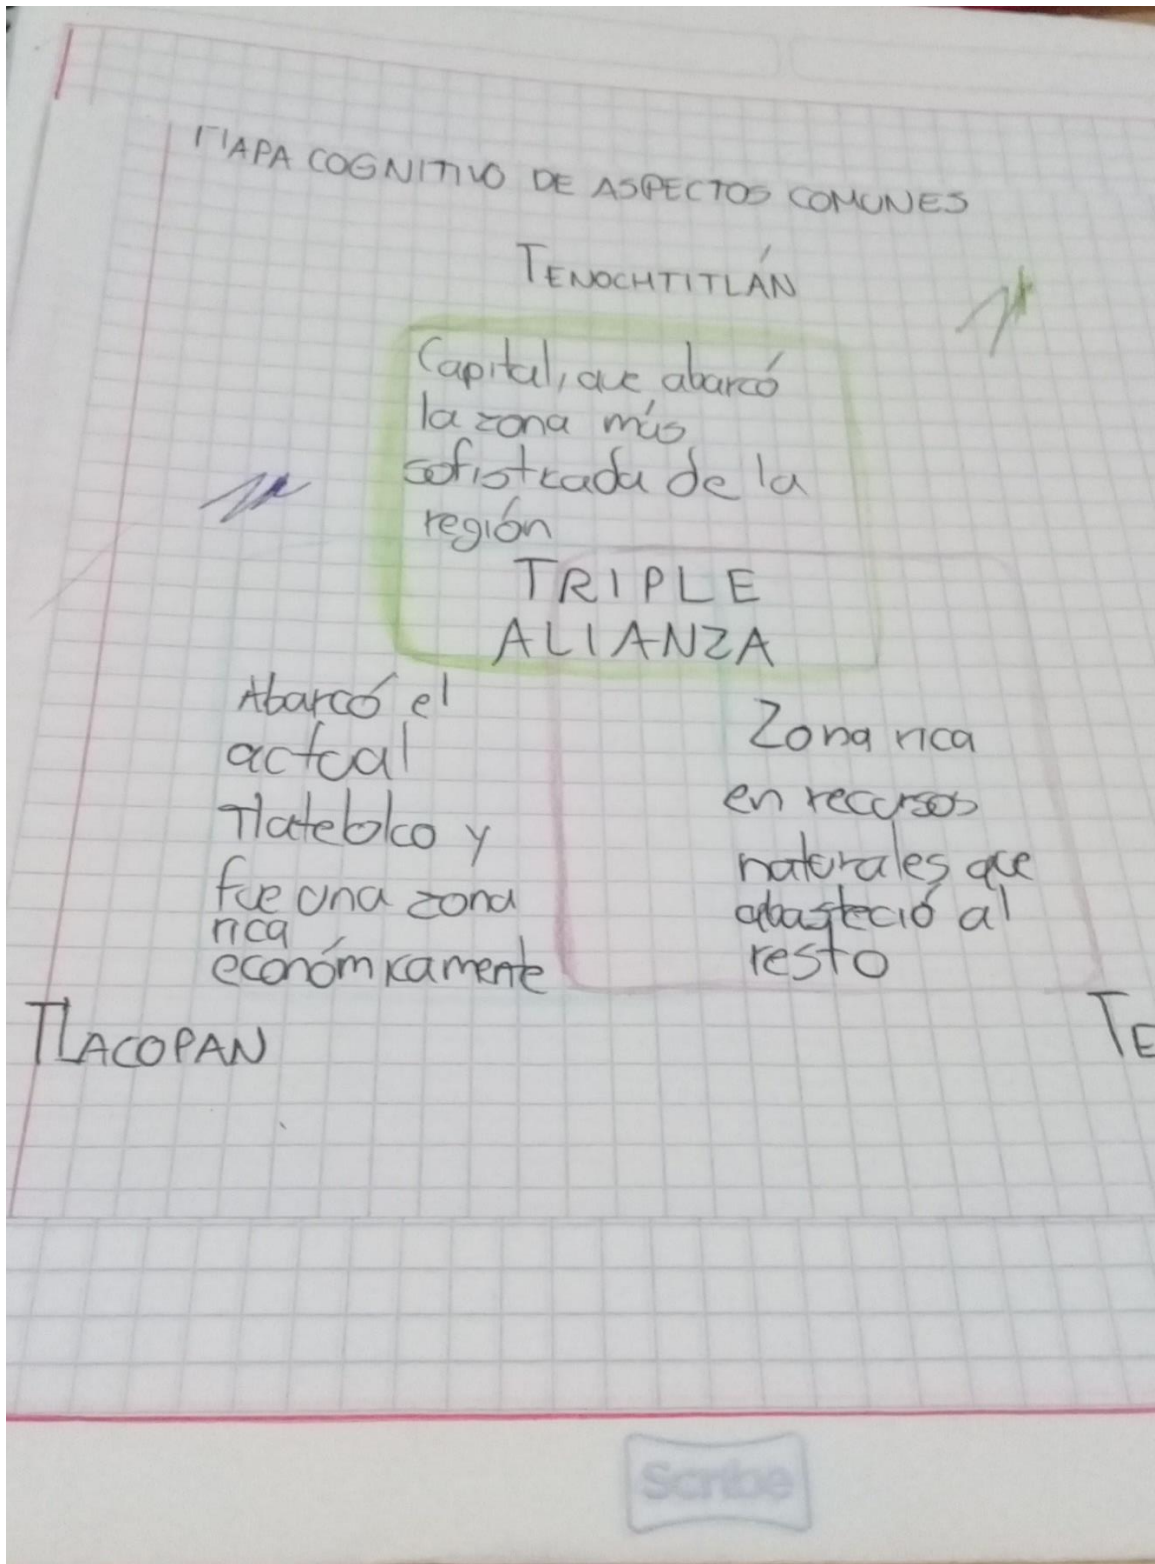 MAPA COGNITIVO DE ASPECTOS COMUNES
TENOCHTITLÁN
Capital, que abarcó
la zona más
sofisticada de la
región
TRIPLE
ALIANZA
Abarcó el
actual
Tlatelolco y
fue una zona
rica
económicamente
Zona rica
en recursos
naturales que
abasteció al
resto
TLACOPAN
TE
Scribe